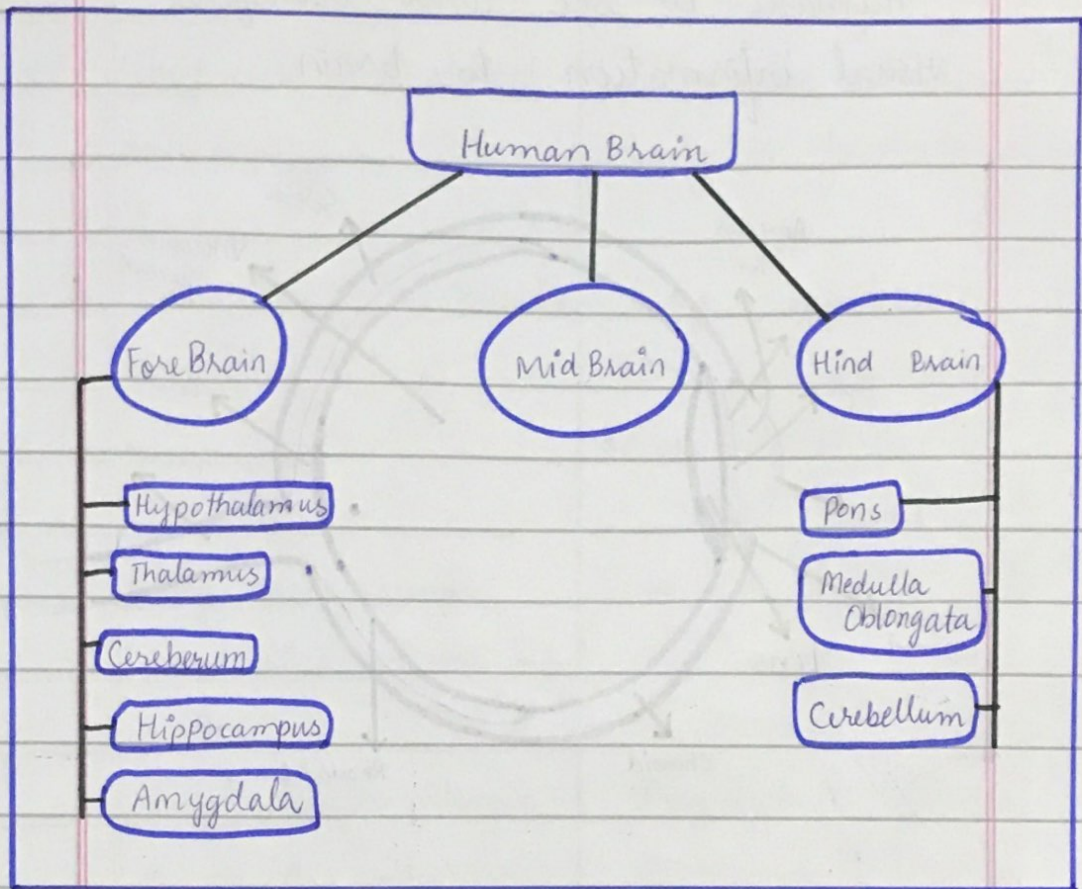 Human Brain
ForeBrain
Mid Brain
Hind Brain
Hypothalamus
Thalamus
Cereberum
Hippocampus
Amygdala
Pons
Medulla
Oblongata
Cerebellum